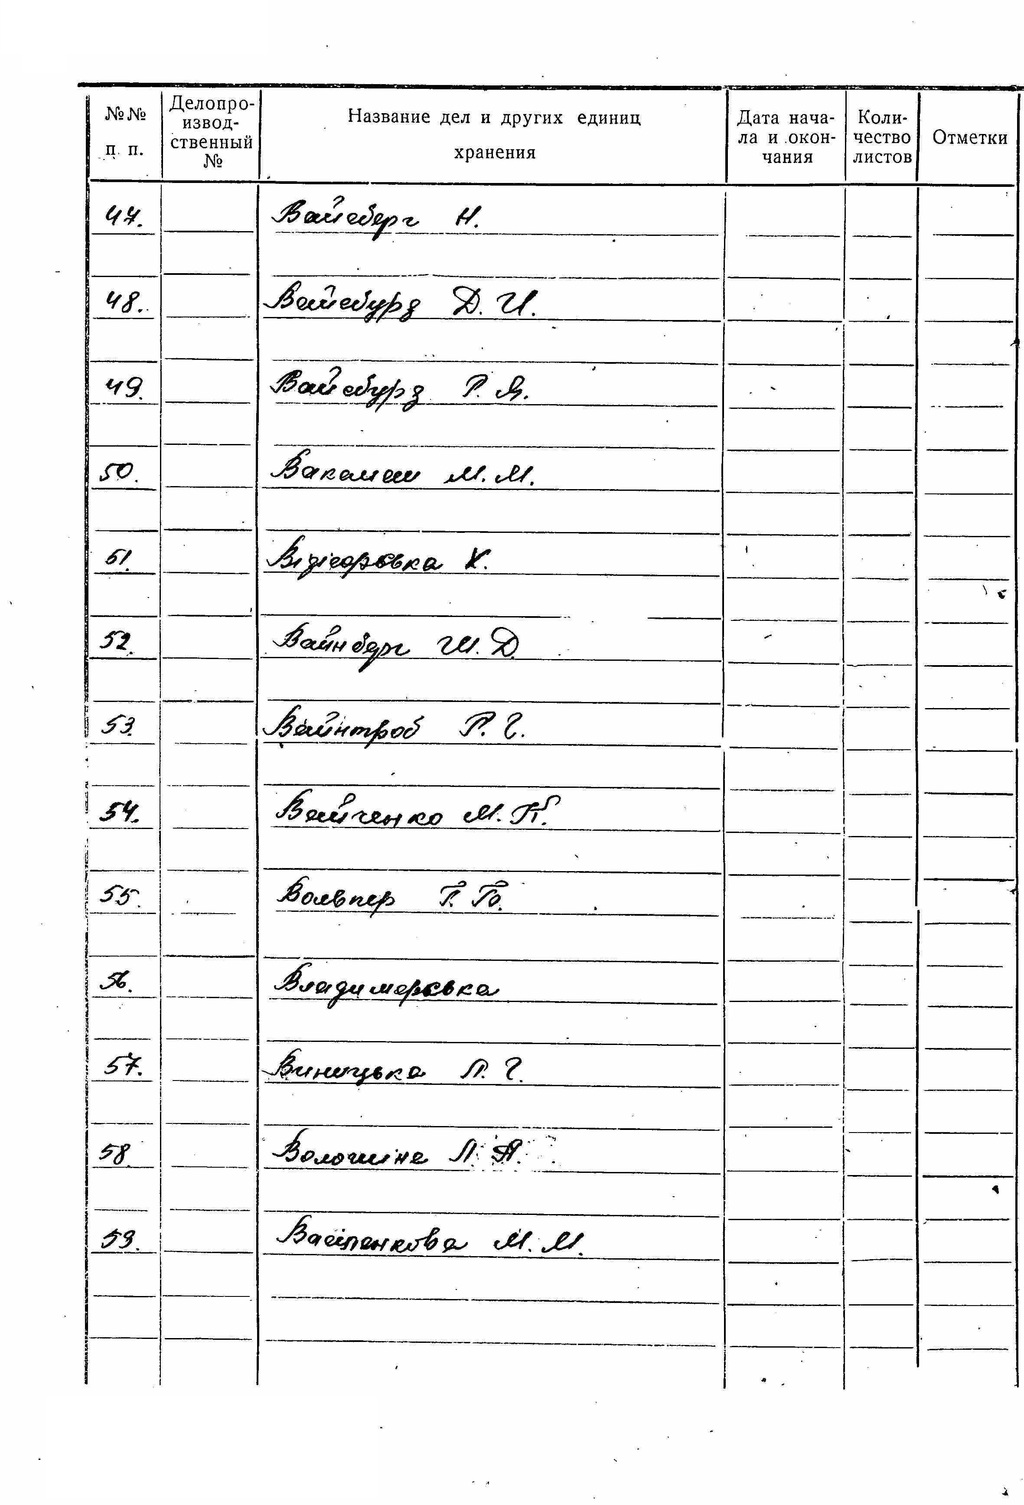 №№ п. п. Делопро-извод-ственный № Название дел и других единиц хранения Дата нача-ла и окон-чания Коли-чество листов Отметки
47. Вайсберг Н.
48. Вайсбурд Д. И.
49. Вайсбурд Р. Я.
50. М. М.
51. К.
52. Вайнберг Ш. Д.
53. Вайнтроб Р. Г.
54. Вайченко М. П.
55. Вольпер Г.
56. Владимерська
57. Виницька Л. Г.
58. Волошина Л. А.
59. М. М.